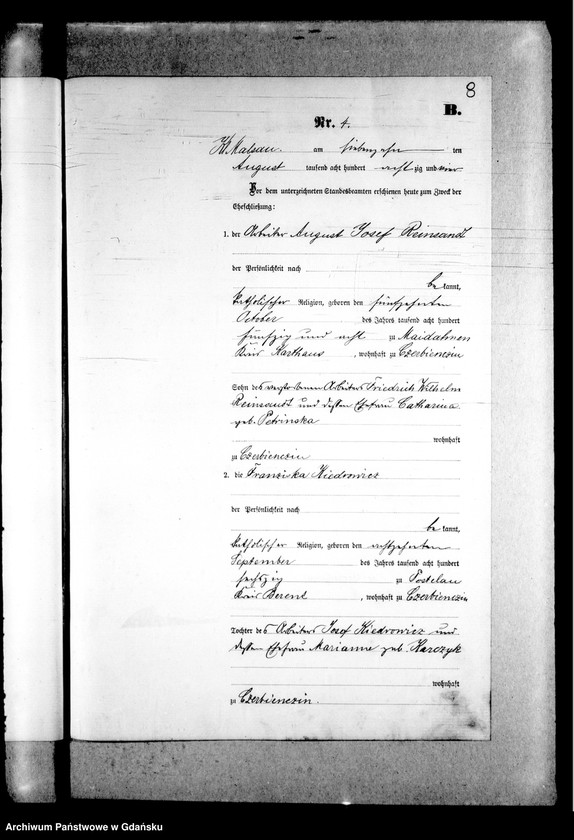 8
B.
Nr. 4.
Kl. Malsau. am siebenzehn ten
August tausend acht hundert acht zig und vier
Vor dem unterzeichneten Standesbeamten erschienen heute zum Zweck der
Eheschließung:
1. der Arbeiter August Josef Reinsandt
der Persönlichkeit nach
be kannt,
katholischer Religion, geboren den fünfzehnten
October des Jahres tausend acht hundert
fünfzig und acht zu Maidahnen
Kreis Karthaus, wohnhaft zu Czerbienczin
Sohn des verstorbenen Arbeiters Friedrich Wilhelm
Reinsandt und dessen Ehefrau Catharina
geb. Petrinska
wohnhaft
zu Czerbienczin
2. die Franziska Kiedrowicz
der Persönlichkeit nach
be kannt,
katholischer Religion, geboren den achtzehnten
September des Jahres tausend acht hundert
sechzig zu Postelau
Kreis Berent, wohnhaft zu Czerbienczin
Tochter des Arbeiters Josef Kiedrowicz und
dessen Ehefrau Marianne geb. Karczyk
wohnhaft
zu Czerbienczin.
Archiwum Państwowe w Gdańsku